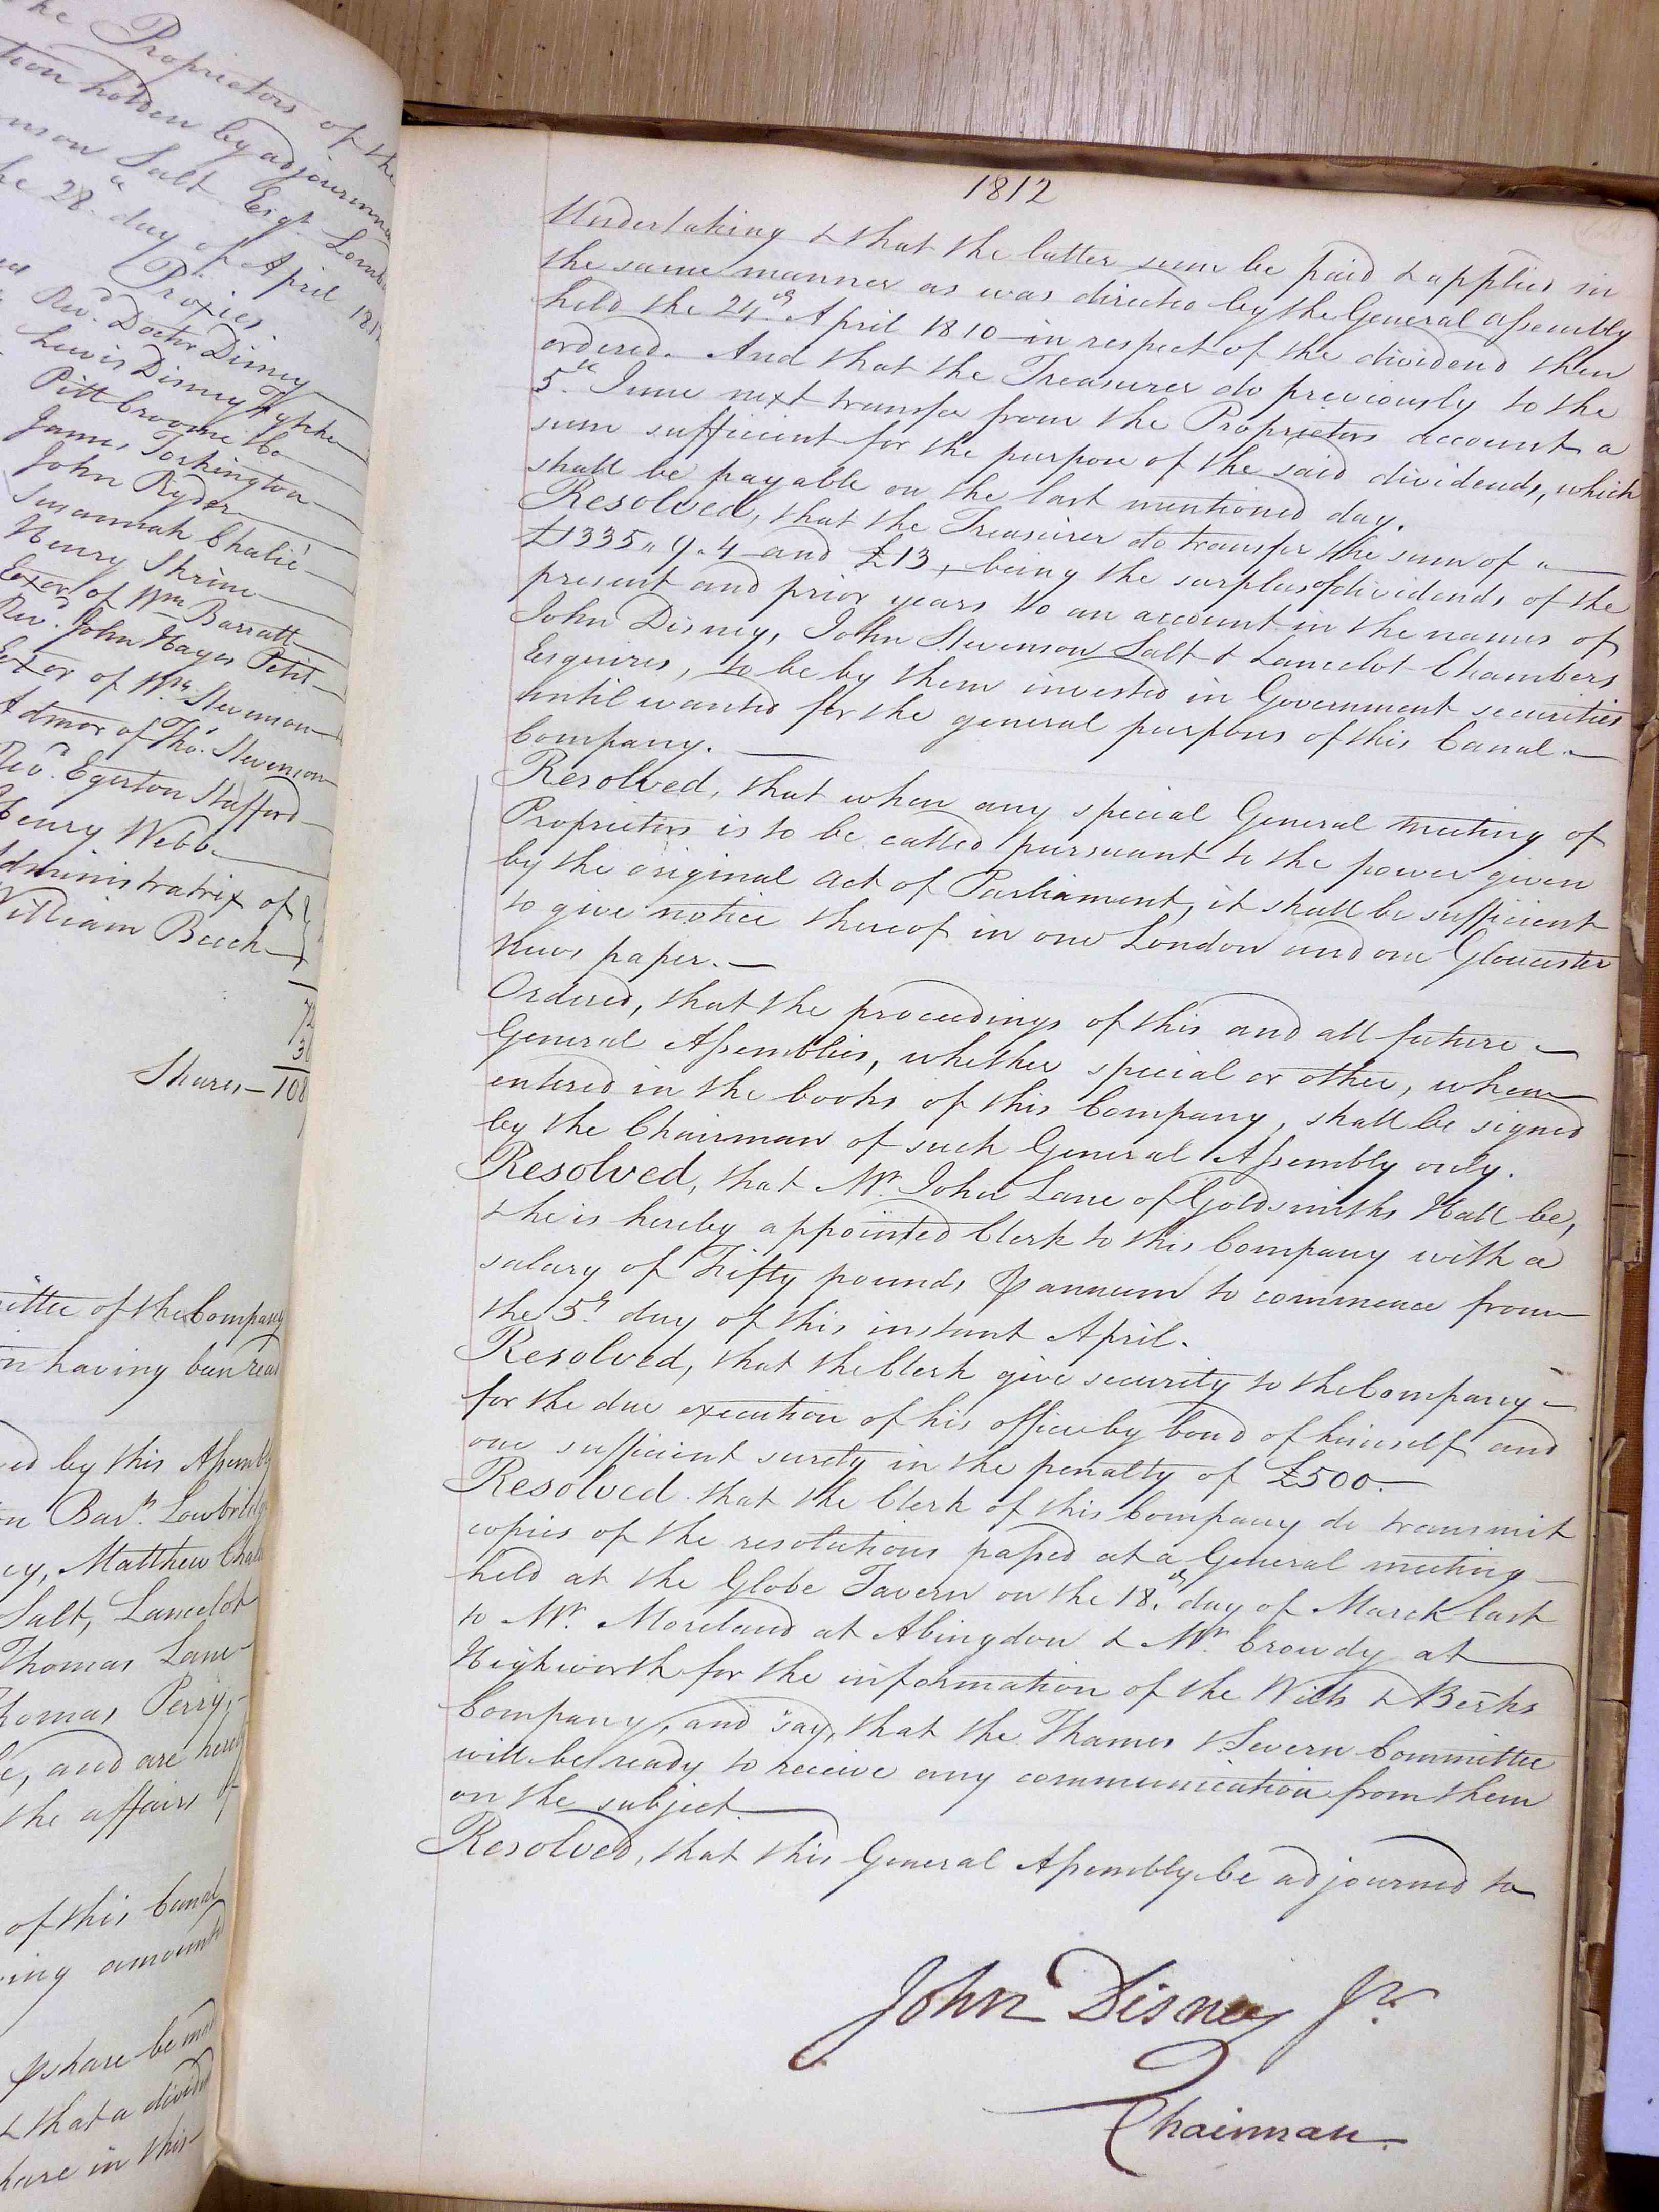 he Proprietors of the
tion holden by adjournme
nson Salt Esqr. Lomb
he 28th day of April 181
Proxies.
Revd. Doctor Disney
Lewis Disney Fytche
Pitt Broome Do
James Torkington
John Ryder
Susannah Chalié
Henry Shrine
Exor of Wm Barratt
Revd. John Hayes Petit
Exor of Wm. Stevenson
Admor of Tho. Stevenson
Revd. Egerton Stafford
Henry Webb
Administratrix of
William Beech
72
36
Shares - 108
ittee of the Company
n having been read
ed by this Assembly
n Bart. Lowbridge
ey, Matthew Chal
Salt, Lancelot
Thomas Lane
Thomas Perry,
e, and are hereby
the affairs of
of this Canal
ing amounted
⅌ share be made
& that a dividend
hare in this
1812
Undertaking & that the latter sum be paid & applied in
the same manner as was directed by the General Assembly
held the 24th. April 1810 in respect of the dividend then
ordered. And that the Treasurer do previously to the
5th June next transfer from the Proprietors account a
sum sufficient for the purpose of the said dividends, which
shall be payable on the last mentioned day.
Resolved, that the Treasurer do transfer the sum of
£1335 " 9 " 4 and £13, being the surplus of dividends of the
present and prior years to an account in the names of
John Disney, John Stevenson Salt & Lancelot Chambers
Esquires, to be by them invested in Government securities
until wanted for the general purposes of this Canal
Company.
Resolved, that when any special General Meeting of
Proprietors is to be called pursuant to the power given
by the original Act of Parliament, it shall be sufficient
to give notice thereof in one London and one Gloucester
News paper.
Ordered, that the proceedings of this and all future
General Assemblies, whether special or other, when
entered in the books of this Company, shall be signed
by the Chairman of such General Assembly only.
Resolved, that Mr. John Lane of Goldsmiths Hall be,
& he is hereby appointed Clerk to this Company with a
salary of Fifty pounds ⅌ annum to commence from
the 5th. day of this instant April.
Resolved, that the Clerk give security to the Company
for the due execution of his office by bond of himself and
one sufficient surety in the penalty of £500.
Resolved that the Clerk of this Company do transmit
copies of the resolutions passed at a General meeting
held at the Globe Tavern on the 18th. day of March last
to Mr. Moreland at Abingdon & Mr. Crowdy at
Highworth for the information of the Wilts & Berks
Company, and say, that the Thames & Severn Committee
will be ready to receive any communication from them
on the subject.
Resolved, that this General Assembly be adjourned to
John Disney Jr.
Chairman.